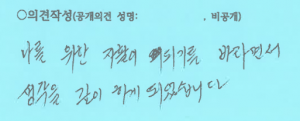 ○의견작성(공개의견 성명: , 비공개)
나를 위한 자활이 되기를 바라면서
생각을 같이 하게 되었습니다